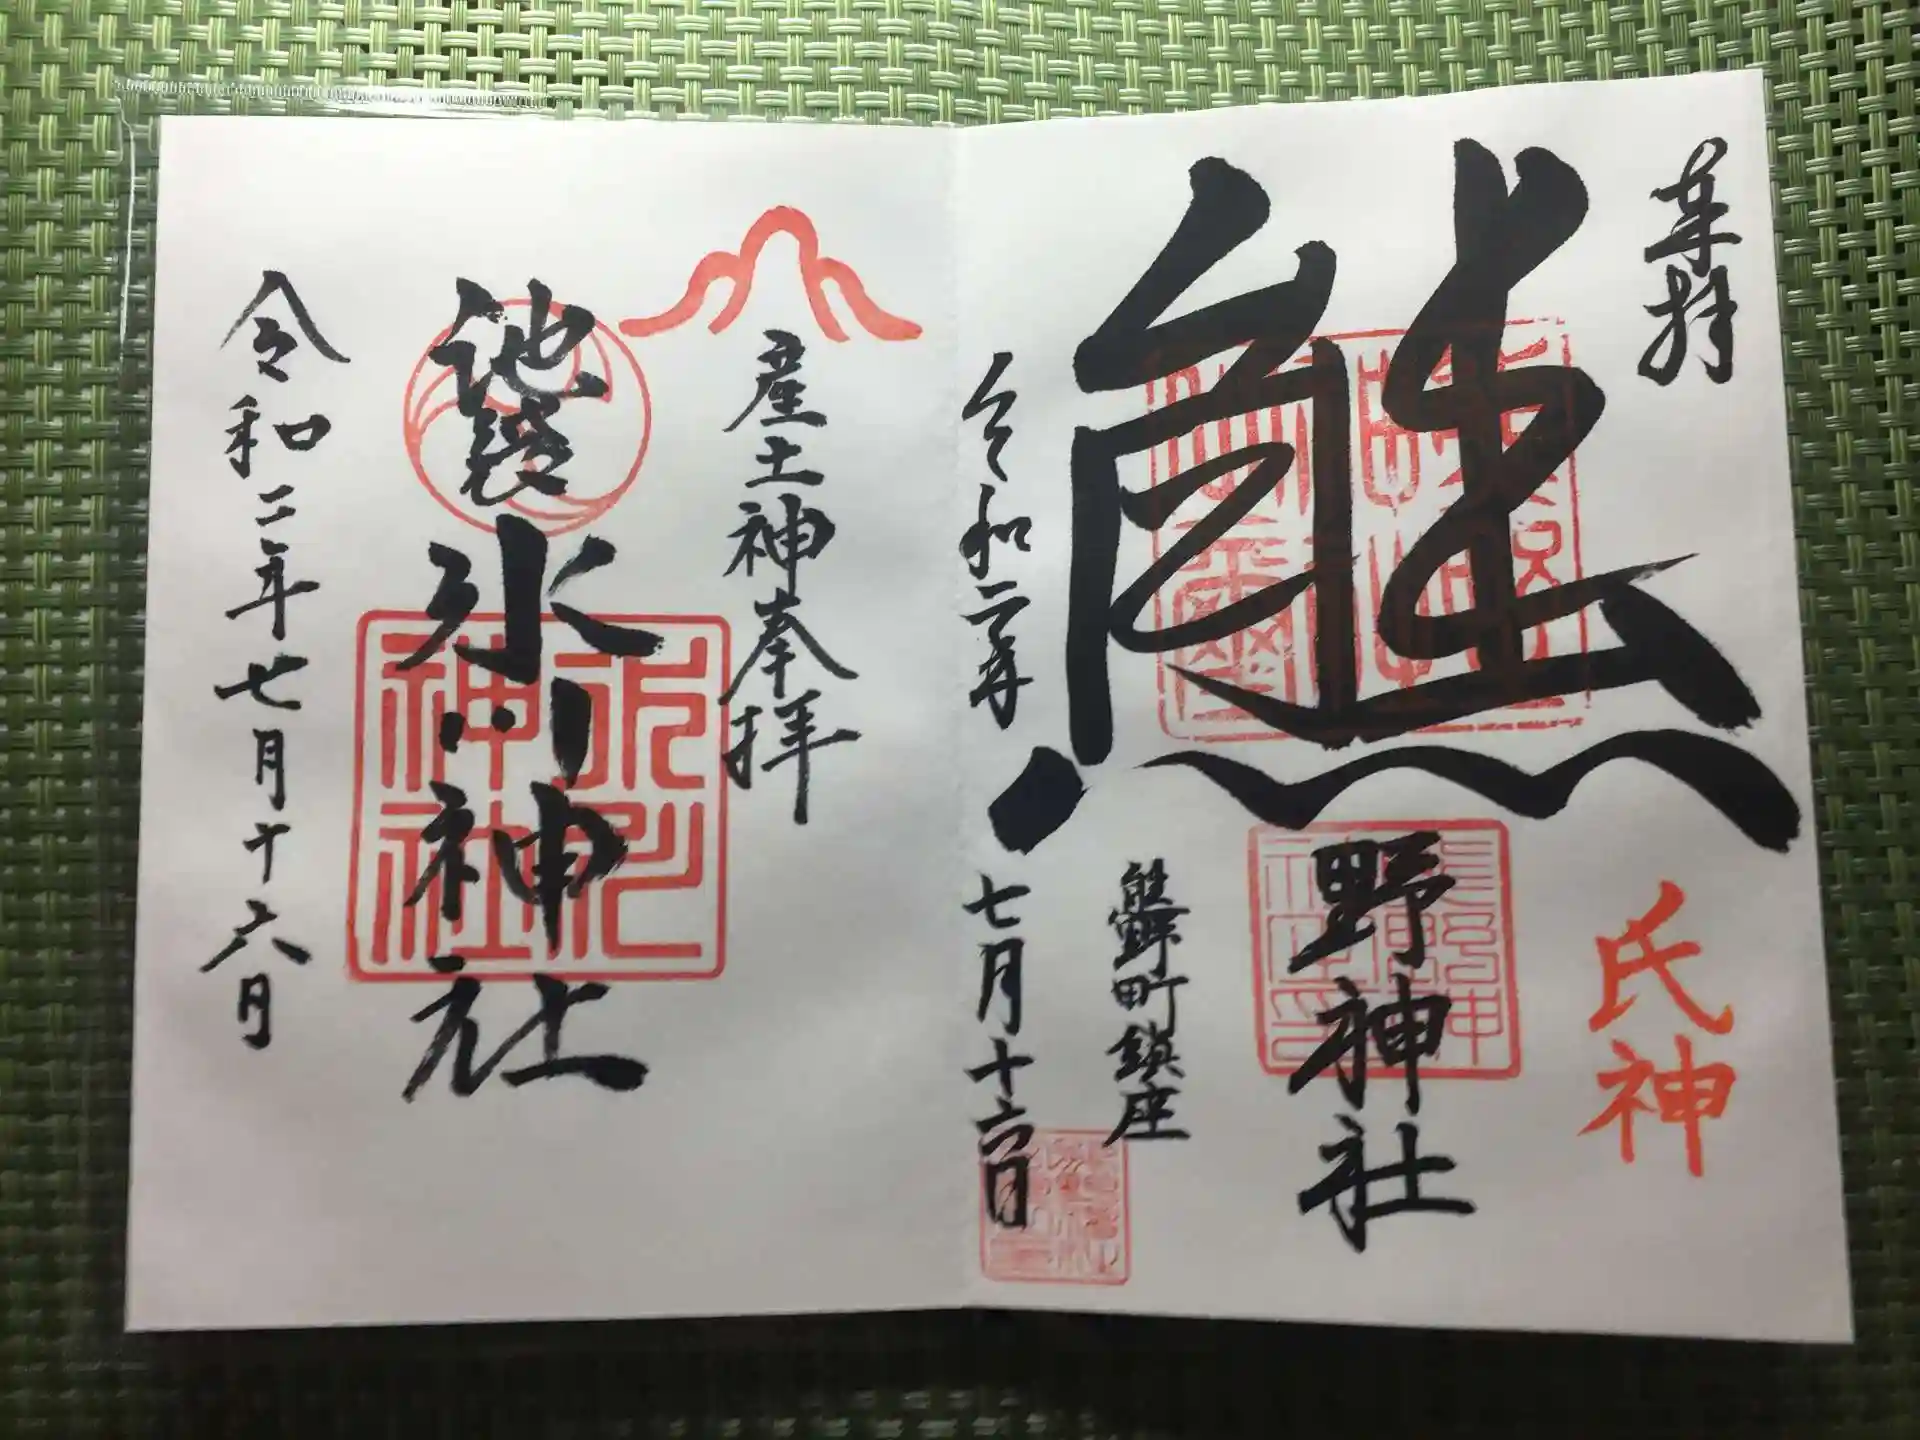 奉拝
氏神
熊野神社
熊野町鎮座
令和二年七月十六日
産土神奉拝
池袋氷川神社
氷川神社
令和二年七月十六日